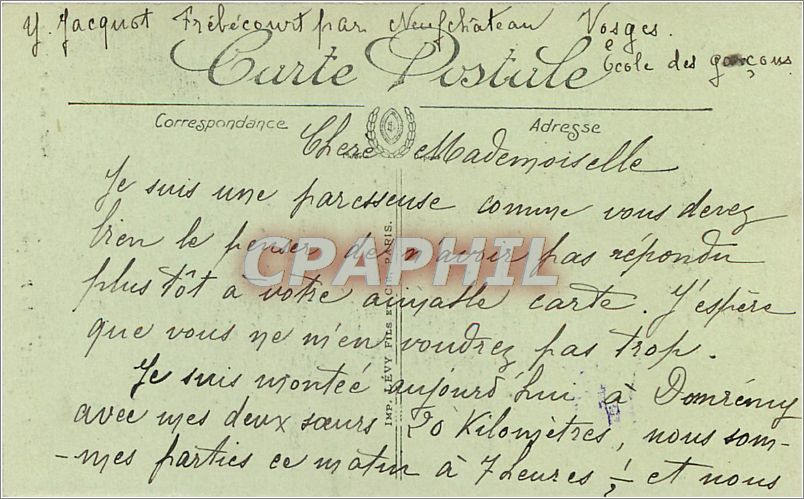 Y. Jacquot Frébécourt par Neufchâteau Vosges.
Ecole des garçons
Carte Postale
Correspondance
Adresse
Chère Mademoiselle
Je suis une paresseuse comme vous devez
bien le penser de n'avoir pas répondu
plus tôt à votre aimable carte. J'espère
que vous ne m'en voudrez pas trop.
Je suis montée aujourd'hui à Domrémy
avec mes deux sœurs 20 Kilomètres, nous som-
-mes parties ce matin à 7 heures ½ et nous
IMP. LÉVY FILS ET CIE PARIS.
CPAPHIL